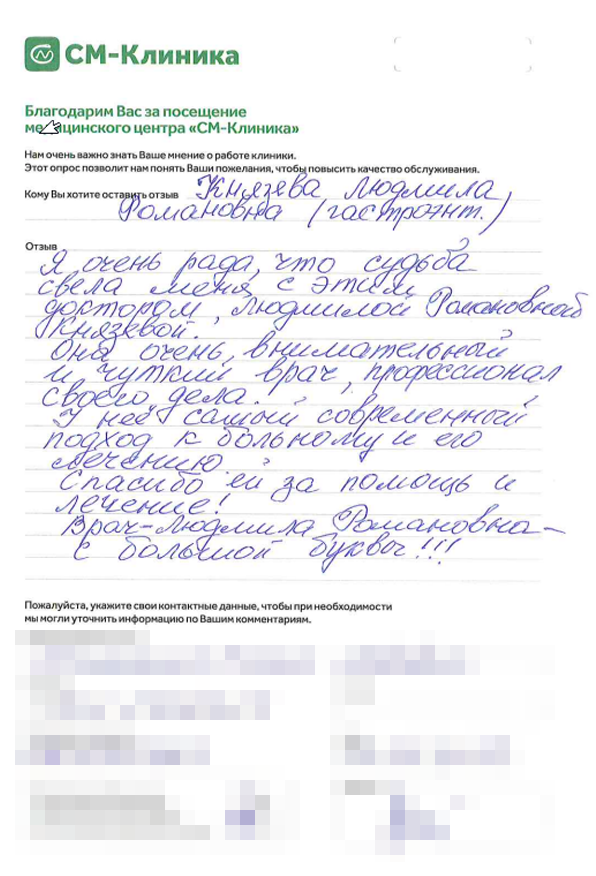 СМ-Клиника
Благодарим Вас за посещение
медицинского центра «СМ-Клиника»
Нам очень важно знать Ваше мнение о работе клиники.
Этот опрос позволит нам понять Ваши пожелания, чтобы повысить качество обслуживания.
Кому Вы хотите оставить отзыв Князева Людмила
Романовна (гастроэнт.)
Отзыв
Я очень рада, что судьба
свела меня с этим
доктором, Людмилой Романовной
Князевой.
Она очень внимательный
и чуткий врач, профессионал
своего дела.
У неё самый современный
подход к больному и его
лечению.
Спасибо ей за помощь и
лечение!
Врач-Людмила Романовна -
с большой буквы!!!
Пожалуйста, укажите свои контактные данные, чтобы при необходимости
мы могли уточнить информацию по Вашим комментариям.